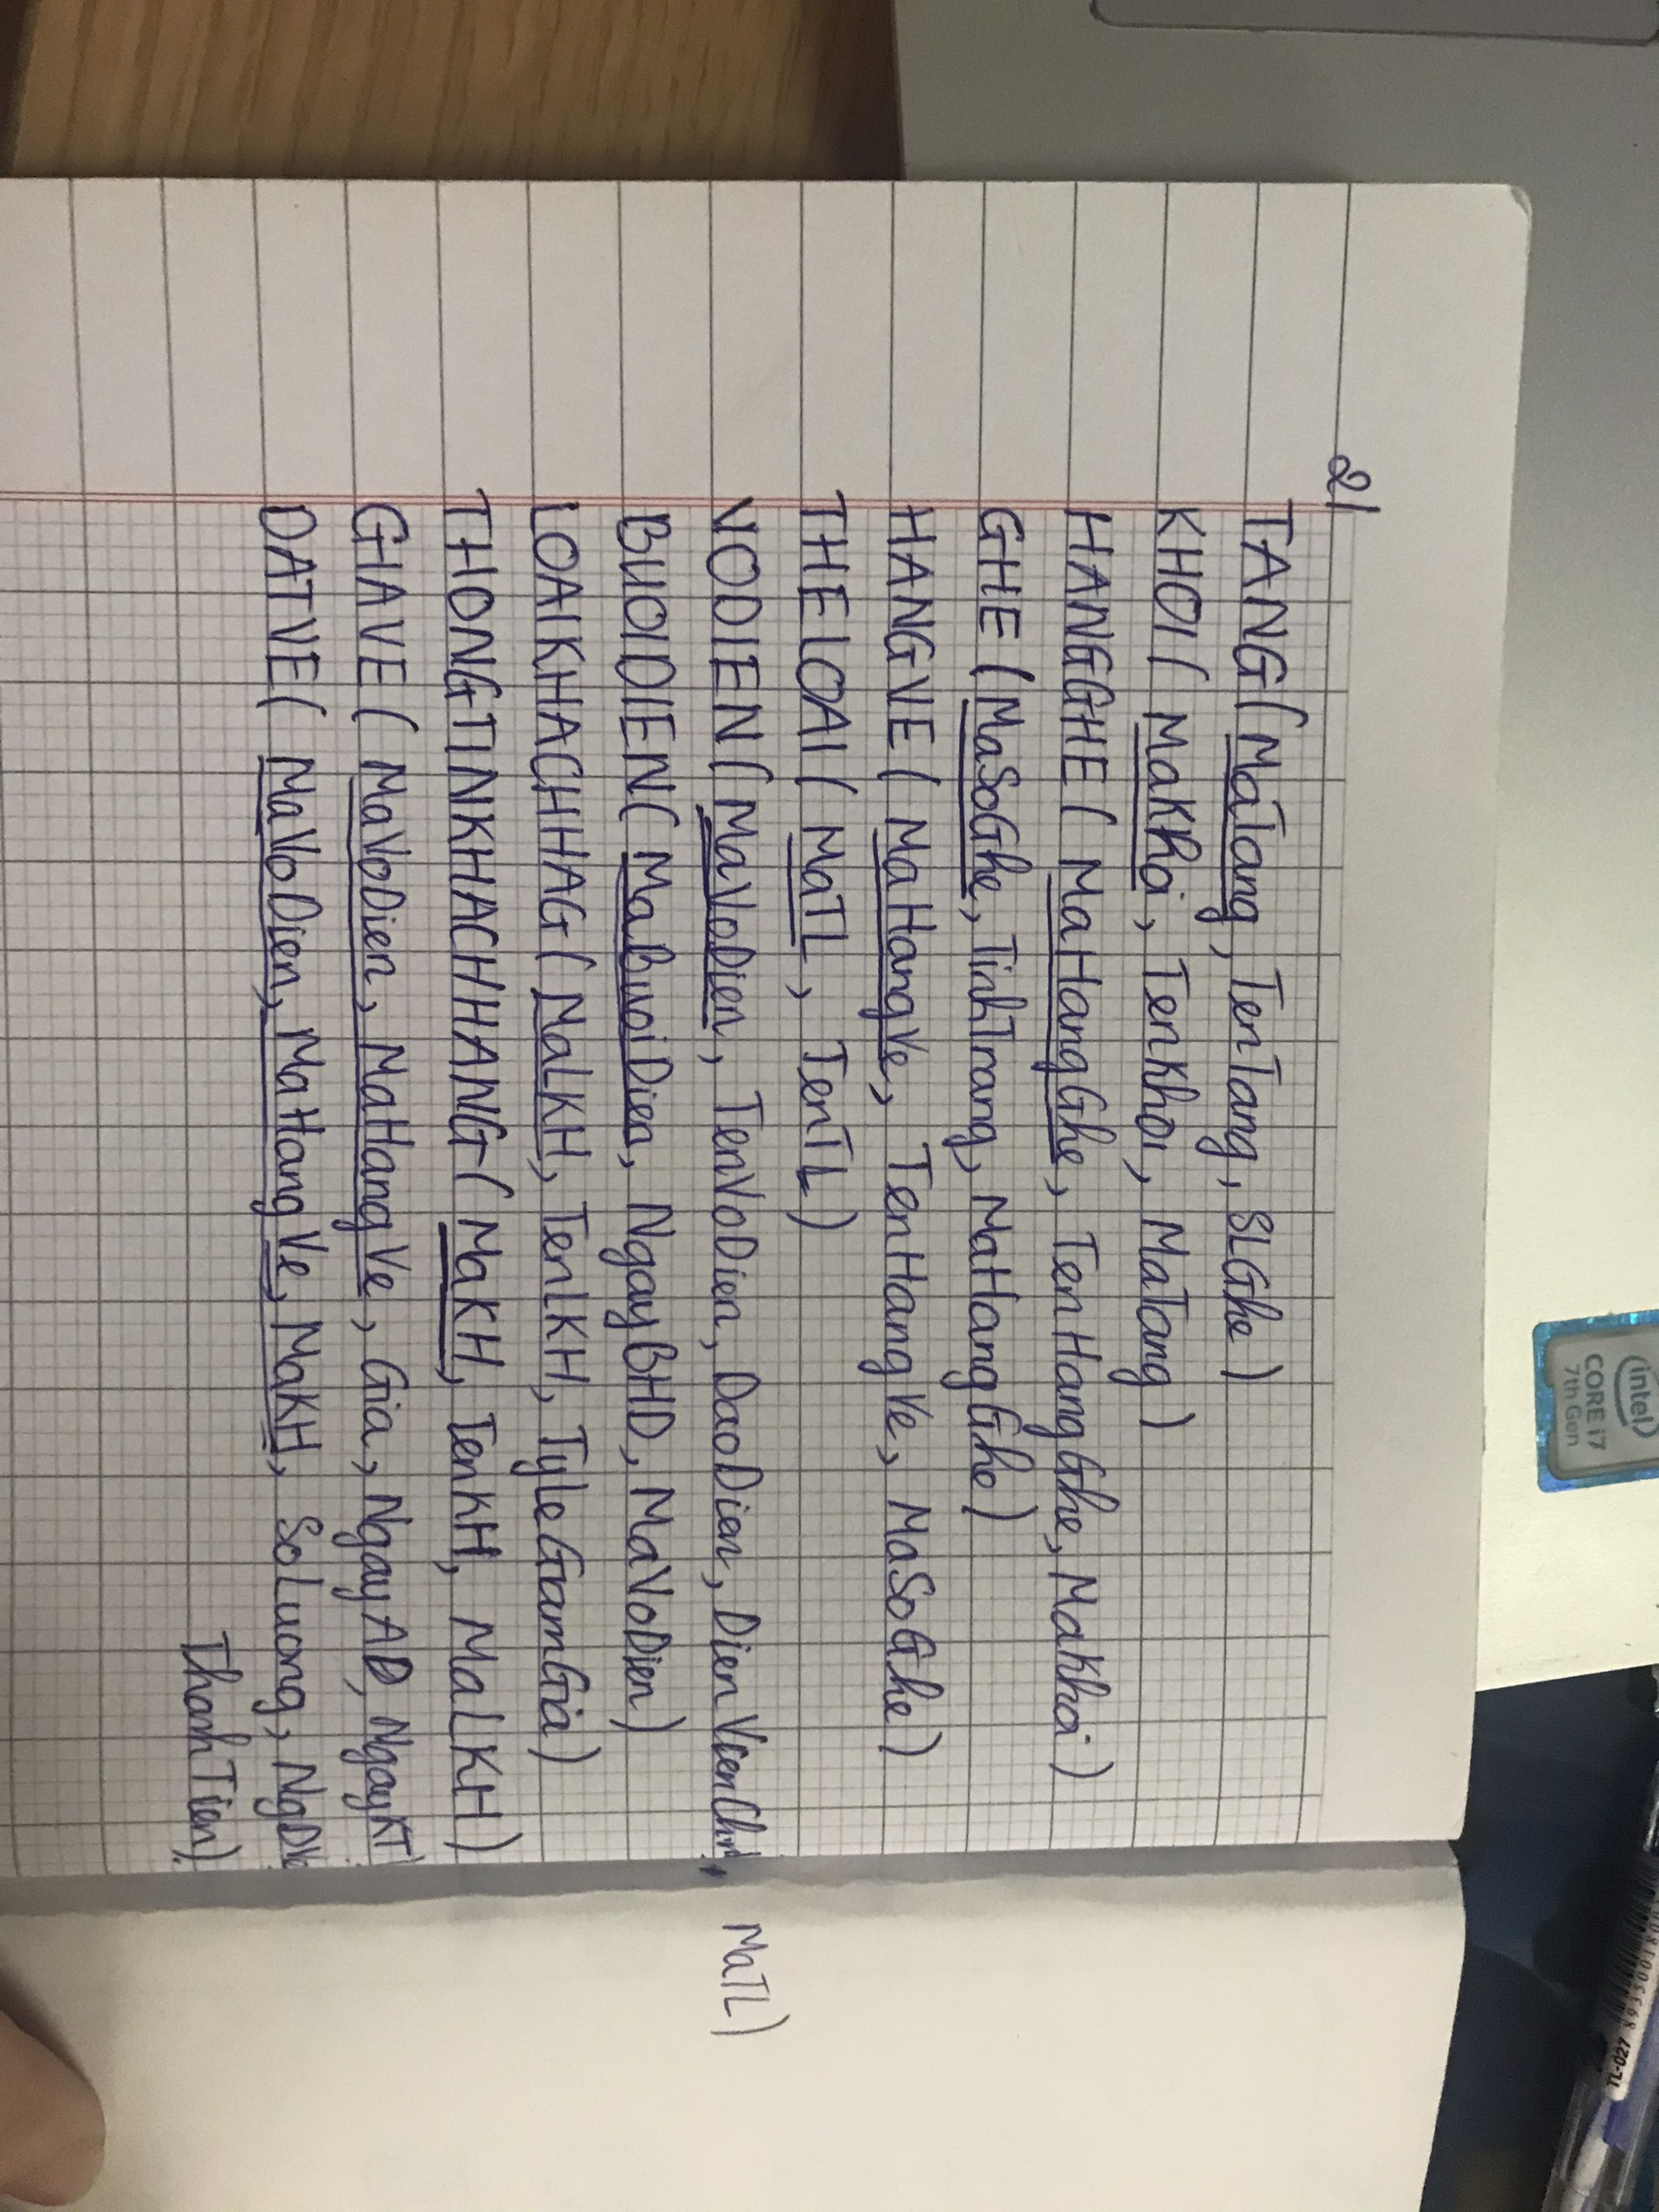 intel
CORE i7
7th Gen
TL-027
2/
TANG(MaTang, TenTang, SLGhe)
KHOI(MaKhoi, TenKhoi, MaTang)
HANGGHE(MaHangGhe, TenHangGhe, MaKhoi)
GHE(MaSoGhe, TinhTrang, MaHangGhe)
HANGVE(MaHangVe, TenHangVe, MaSoGhe)
THELOAI(MaTL, TenTL)
VODIEN(MaVoDien, TenVoDien, DaoDien, DienVienChinh, MaTL)
BUOIDIEN(MaBuoiDien, NgayBHD, MaVoDien)
LOAIKHACHHAG(MaLKH, TenLKH, TyLeGiamGia)
THONGTINKHACHHANG(MaKH, TenKH, MaLKH)
GIAVE(MaVoDien, MaHangVe, Gia, NgayAD, NgayKT)
DATVE(MaVoDien, MaHangVe, MaKH, SoLuong, NgDVe
ThanhTien).